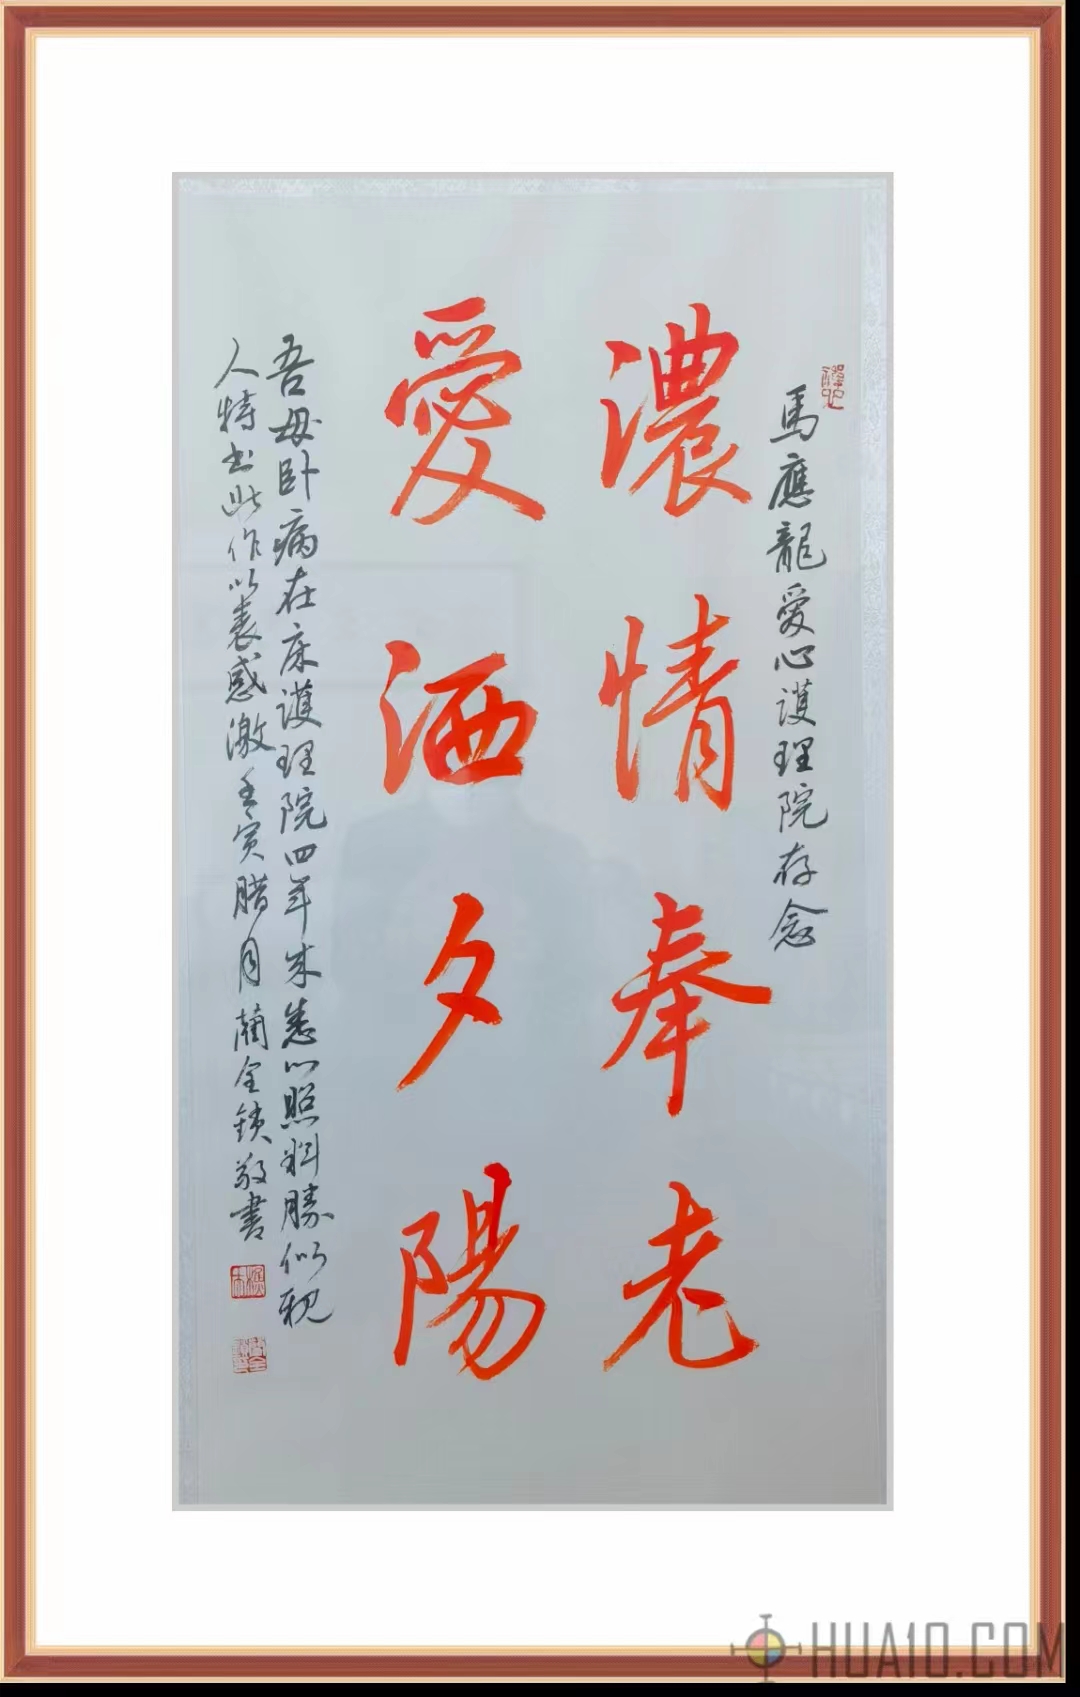 馬應龍愛心護理院存念
濃情奉老
愛洒夕陽
吾母卧病在床護理院四年来悉心照料勝似親
人特书此作以表感激壬寅腊月蔺全锁敬書
HUA10.COM